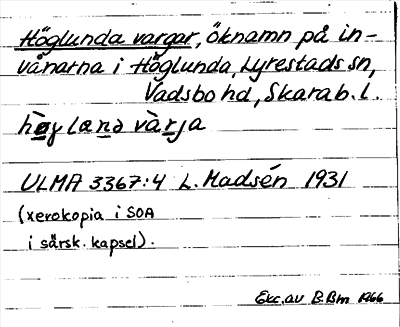 Höglunda vargar, öknamn på in-
vånarna i Höglunda, Lyrestads sn,
Vadsbo hd, Skarab. l.
hø̀glænda vàrja
ULMA 3367:4 L. Madsén 1931
(xerokopia i SOA
i särsk. kapsel).
Exc. av B. Bm 1966